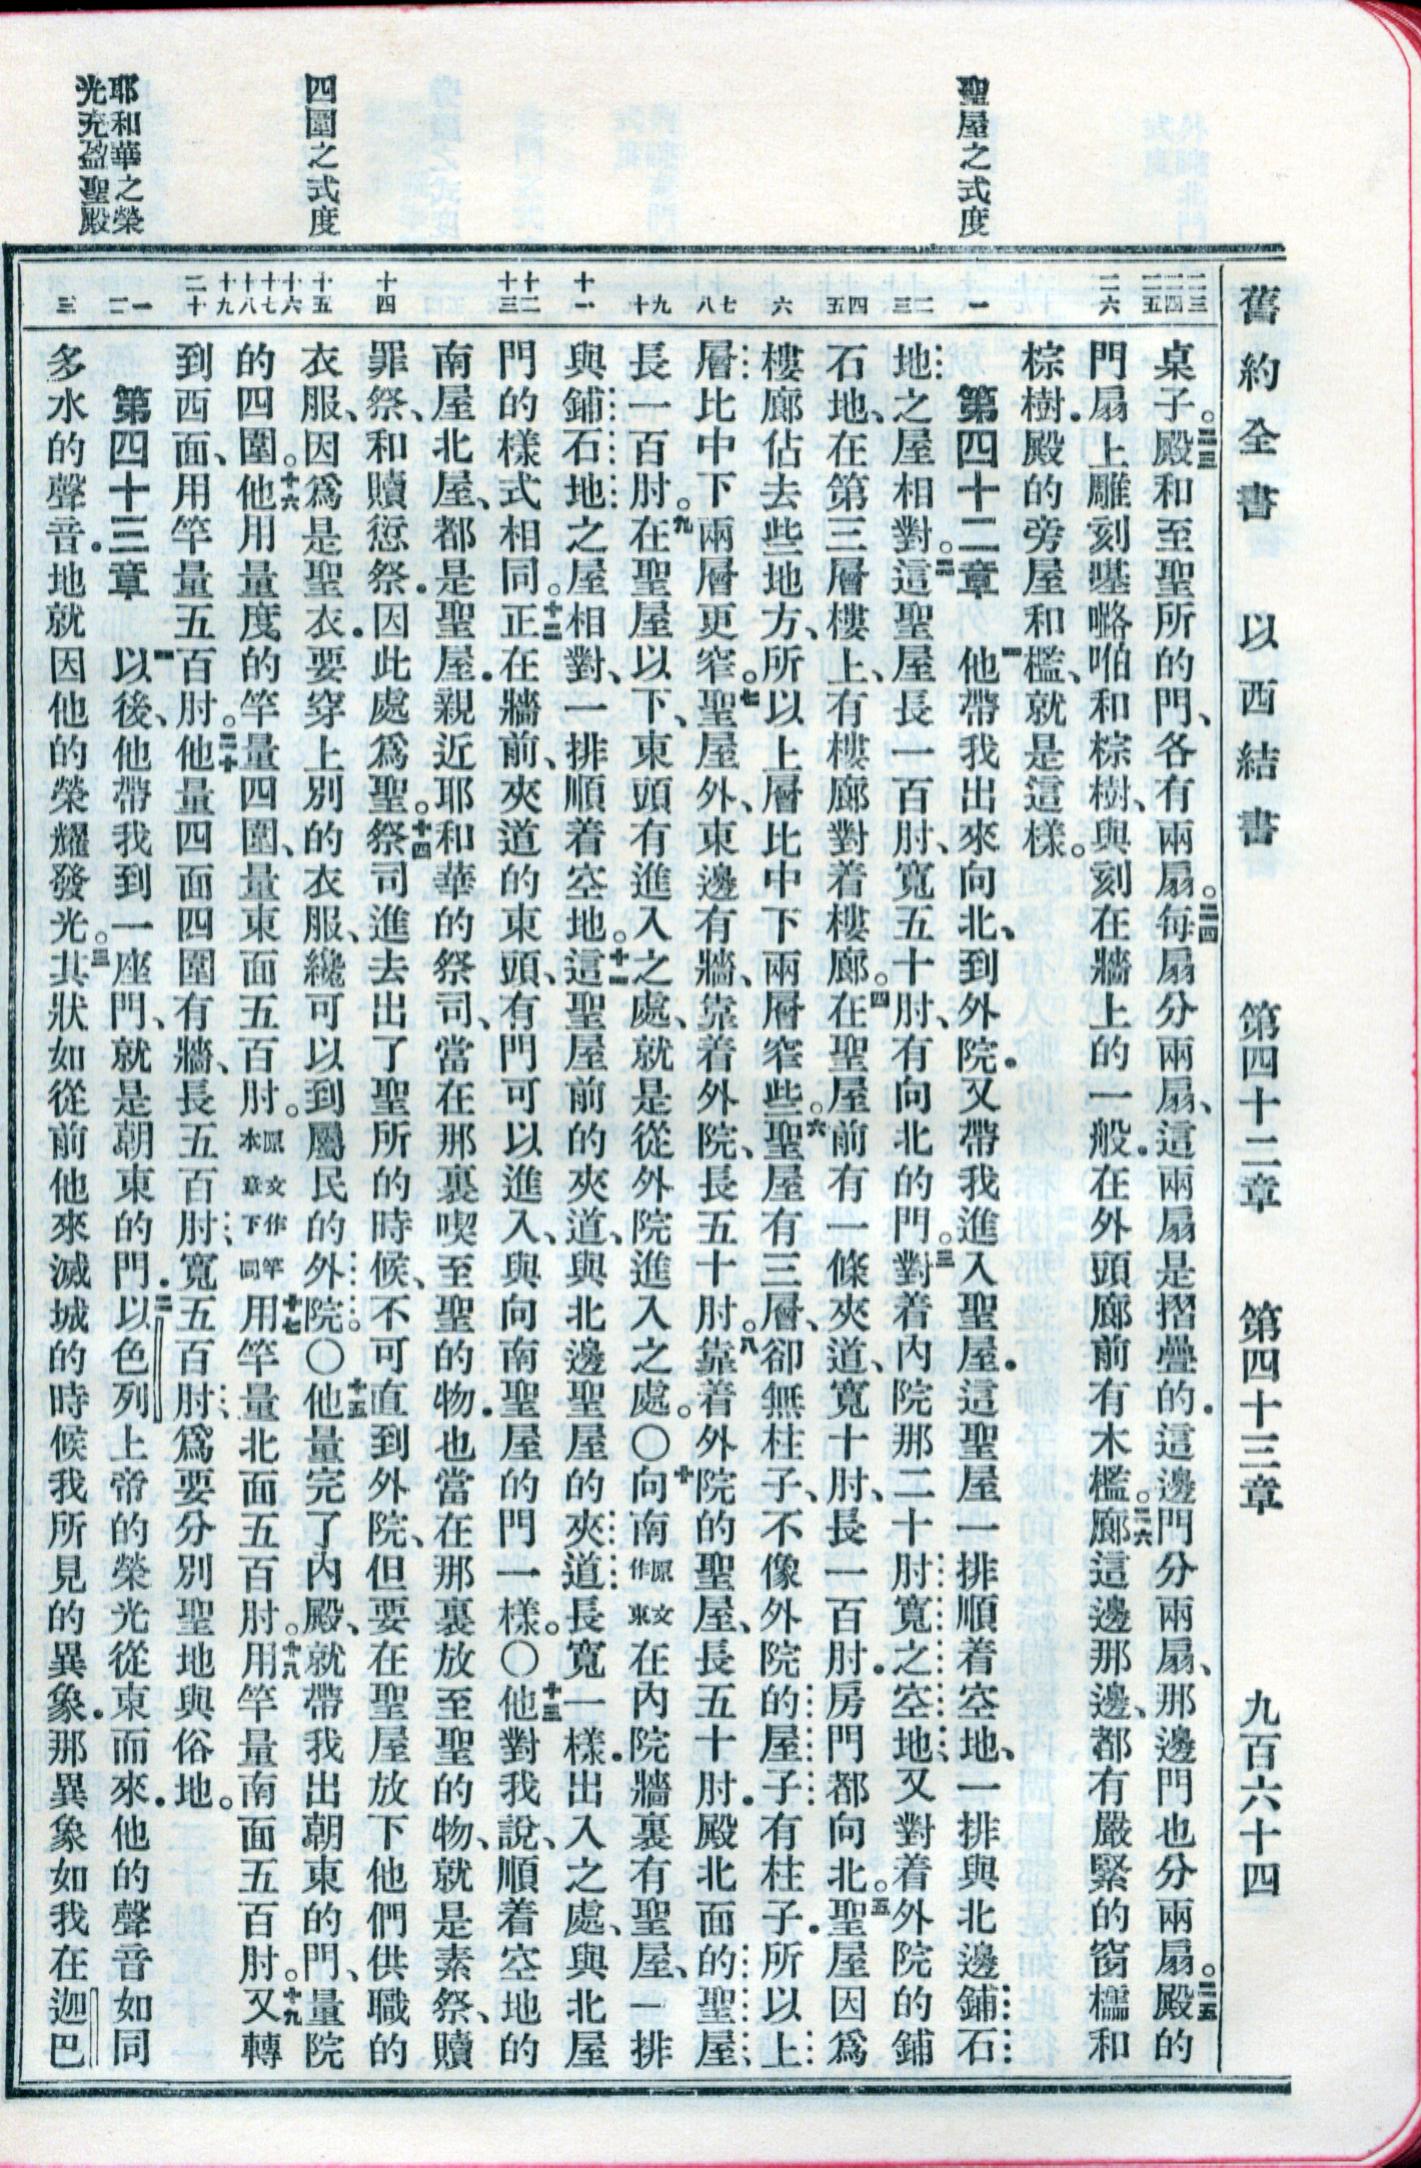 舊約全書　以西結書　第四十二章　第四十三章　九百六十四
聖屋之式度
四圍之式度
耶和華之榮
光充盈聖殿
二十三 二十四 二十五
二十六
一
二 三
四 五
六
七 八
九 十
十一
十二 十三
十四
十五
十六 十七 十八 十九
二十
一 二
三
桌子。二十三殿和至聖所的門、各有兩扇。二十四每扇分兩扇、這兩扇是摺疊的．這邊門分兩扇、那邊門也分兩扇。二十五殿的
門扇上雕刻𠼻㗉啪和棕樹、與刻在牆上的一般．在外頭廊前有木檻。二十六廊這邊那邊、都有嚴緊的窗櫺和
棕樹．殿的旁屋和檻、就是這樣。
第四十二章　一他帶我出來向北、到外院．又帶我進入聖屋．這聖屋一排順着空地、一排與北邊鋪石
地之屋相對。二這聖屋長一百肘、寬五十肘、有向北的門。三對着內院那二十肘寬之空地、又對着外院的鋪
石地、在第三層樓上、有樓廊對着樓廊。四在聖屋前有一條夾道、寬十肘、長一百肘．房門都向北。五聖屋因爲
樓廊佔去些地方、所以上層比中下兩層窄些。六聖屋有三層、卻無柱子、不像外院的屋子有柱子．所以上
層比中下兩層更窄。七聖屋外、東邊有牆、靠着外院、長五十肘。八靠着外院的聖屋、長五十肘．殿北面的聖屋、
長一百肘。九在聖屋以下、東頭有進入之處、就是從外院進入之處。〇十向南原文作東在內院牆裏有聖屋、一排
與鋪石地之屋相對、一排順着空地。十一這聖屋前的夾道、與北邊聖屋的夾道長寬一樣．出入之處、與北屋
門的樣式相同。十二正在牆前、夾道的東頭、有門可以進入、與向南聖屋的門一樣。〇十三他對我說、順着空地的
南屋北屋、都是聖屋．親近耶和華的祭司、當在那裏喫至聖的物．也當在那裏放至聖的物、就是素祭、贖
罪祭、和贖愆祭．因此處爲聖。十四祭司進去出了聖所的時候、不可直到外院、但要在聖屋放下他們供職的
衣服、因爲是聖衣．要穿上別的衣服、纔可以到屬民的外院。〇十五他量完了內殿、就帶我出朝東的門、量院
的四圍。十六他用量度的竿量四圍、量東面五百肘。原文作竿本章下同十七用竿量北面五百肘。十八用竿量南面五百肘。十九又轉
到西面、用竿量五百肘。二十他量四面四圍有牆、長五百肘、寬五百肘、爲要分別聖地與俗地。
第四十三章　一以後、他帶我到一座門、就是朝東的門．二以色列上帝的榮光從東而來．他的聲音如同
多水的聲音．地就因他的榮耀發光。三其狀如從前他來滅城的時候我所見的異象．那異象如我在迦巴